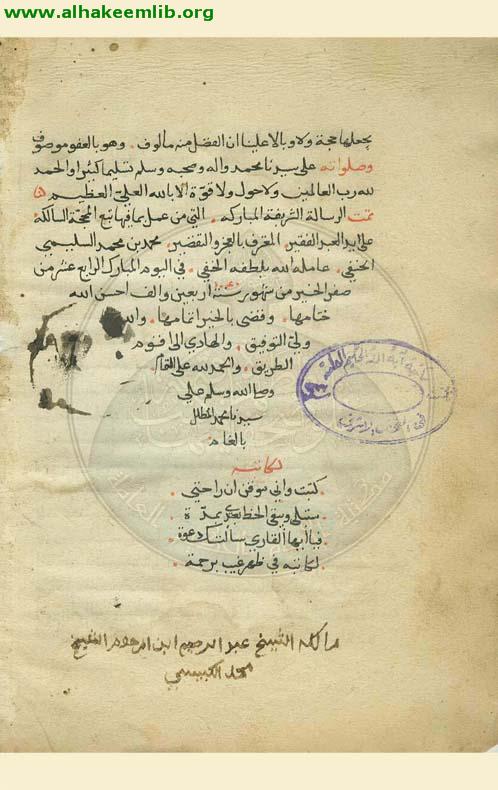 www.alhakeemlib.org
يجعلها حجة ولا وبالا علينا ان الفضل منه مألوف . وهو بالعفو موصوف
وصلواته على سيدنا محمد واله وصحبه وسلم تسليما كثيرا والحمد
لله رب العالمين ولا حول ولا قوة الا بالله العلي العظيم
تمت الرسالة الشريفة المباركه . التي من عمل بما فيها تبع المحجة السالكة
على يد العبد الفقير المعترف بالعجز والتقصير محمد بن محمد السليمي
الحنفي . عامله الله بلطفه الخفي . في اليوم المبارك الرابع عشر من
صفر الخير من شهور سنة اربعين والف احسن الله
ختامها . وقضى بالخير اتمامها . والله
ولي التوفيق . والهادي الى اقوم
الطريق . والحمد لله على التمام
وصلى الله وسلم على
سيدنا محمد المظلل
بالغمام
لكاتبه
كتبت واني موقن ان راحتي .
ستبلى ويبقى الخط بعدي بمدة .
فيا ايها القاري سالتك دعوة .
لكاتبه في ظهر غيب برحمة .
مالكه الشيخ عبد الرحيم ابن المرحوم الشيخ
محمد الكبيسي